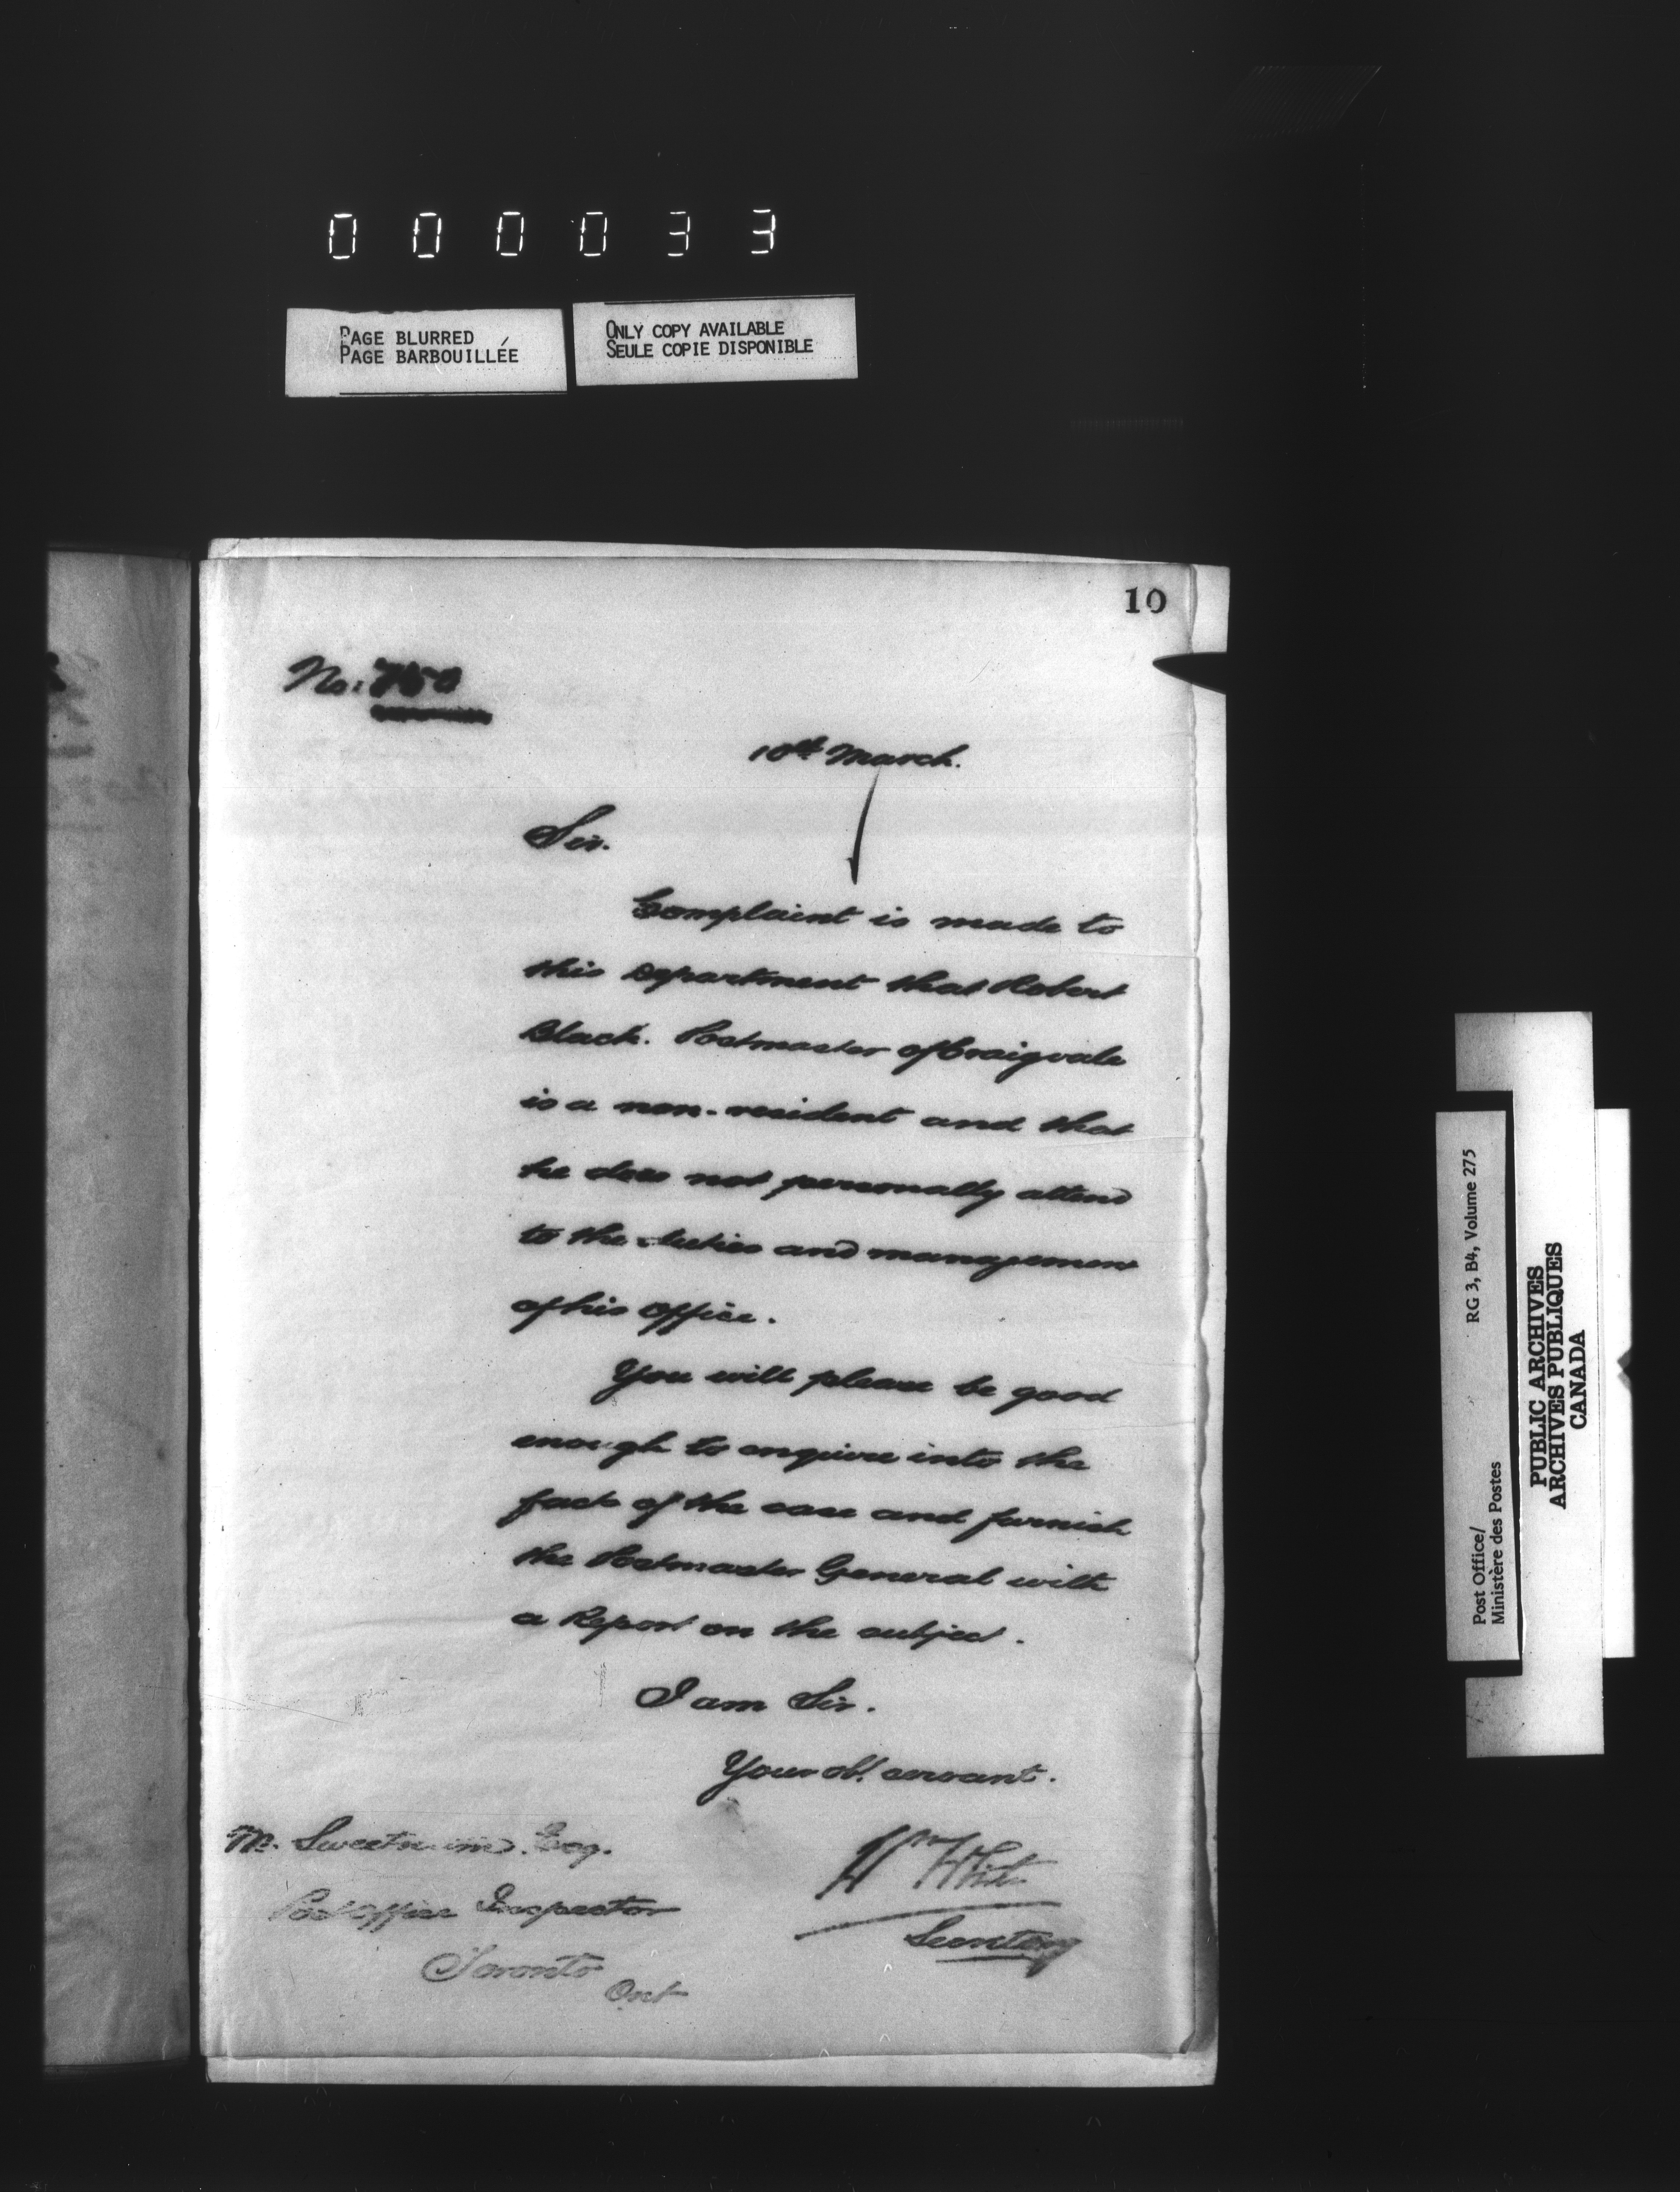 000033
PAGE BLURRED
PAGE BARBOUILLÉE
ONLY COPY AVAILABLE
SEULE COPIE DISPONIBLE
10
No: 750
10th March.
Sir.
Complaint is made to
this Department that Robert
Black. Postmaster of Craigvale
is a non-resident and that
he does not personally attend
to the duties and management
of his Office.
You will please be good
enough to enquire into the
facts of the case and furnish
the Postmaster General with
a Report on the subject.
I am Sir.
Your ob. servant.
Wm White
Secretary
M. Sweetnam. Esq.
Post Office Inspector
Toronto
Ont
Post Office/
Ministère des Postes
RG 3, B4, Volume 275
PUBLIC ARCHIVES
ARCHIVES PUBLIQUES
CANADA